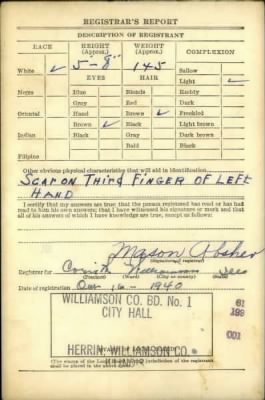 REGISTRAR'S REPORT
DESCRIPTION OF REGISTRANT
RACE HEIGHT (Approx.) WEIGHT (Approx.) COMPLEXION
White ✓ 5-8" 145 Sallow
EYES HAIR Light ✓
Negro Blue Blonde Ruddy
Gray Red Dark
Oriental Hazel Brown ✓ Freckled
Brown ✓ Black Light brown
Indian Black Gray Dark brown
Bald Black
Filipino
Other obvious physical characteristics that will aid in identification
SCAR ON THIRD FINGER OF LEFT
HAND
I certify that my answers are true; that the person registered has read or has had
read to him his own answers; that I have witnessed his signature or mark and that
all of his answers of which I have knowledge are true, except as follows:
Mason Absher
(Signature of registrar)
Registrar for Corinth Williamson Ills
(Precinct) (Ward) (City or county) (State)
Date of registration Oct 16 - 1940
WILLIAMSON CO. BD. No. 1
CITY HALL
61
199
001
HERRIN, WILLIAMSON CO.
ILLINOIS
(The stamp of the Local Board of the registrant
shall be placed in the above space)